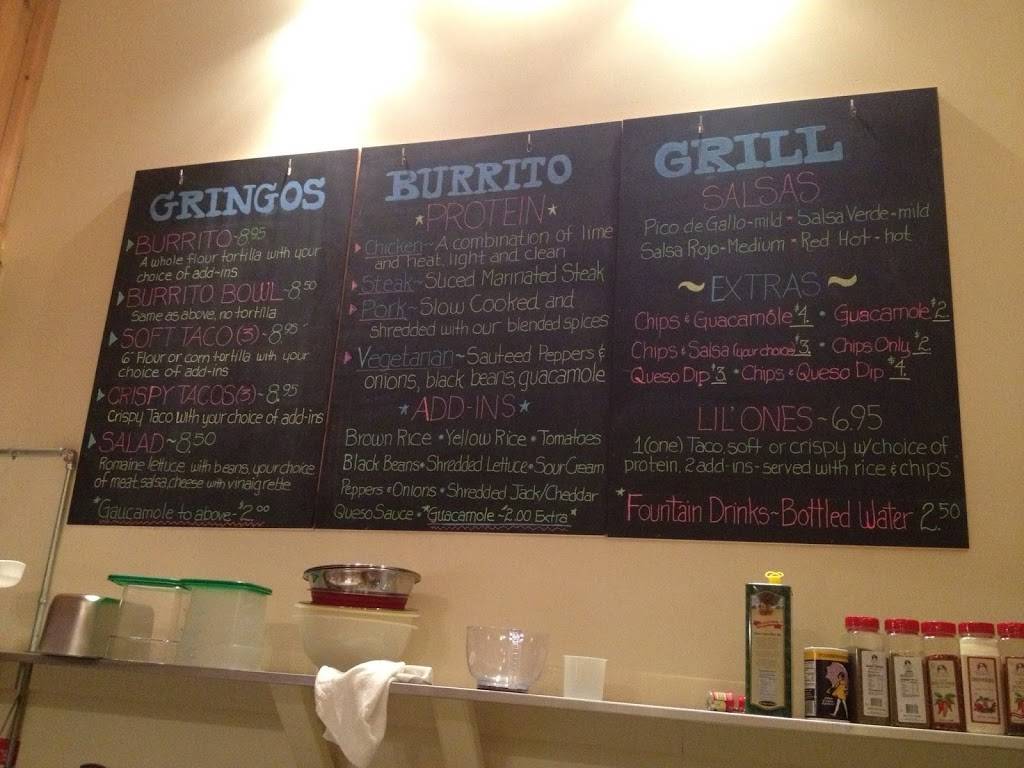 GRINGOS
BURRITO~8.95
A whole flour tortilla with your
choice of add-ins
BURRITO BOWL~8.50
Same as above, no tortilla
SOFT TACO(3)~8.95
6" Flour or corn tortilla with your
choice of add-ins
CRISPY TACOS(3)~8.95
Crispy Taco with your choice of add-ins
SALAD~8.50
Romaine lettuce, with beans, your choice
of meat, salsa, cheese with vinaigrette
*Gaucamole to above~$2.00
BURRITO
*PROTEIN*
Chicken~A combination of lime
and heat, light and clean
Steak~Sliced Marinated Steak
Pork~Slow Cooked and
shredded with our blended spices
Vegetarian~Sauteed Peppers &
onions, black beans, guacamole
*ADD-INS*
Brown Rice • Yellow Rice • Tomatoes
Black Beans • Shredded Lettuce • Sour Cream
Peppers & Onions • Shredded Jack/Cheddar
Queso Sauce • *Guacamole~2.00 Extra*
GRILL
SALSAS
Pico de Gallo-mild - Salsa Verde-mild
Salsa Rojo-Medium - Red Hot-hot
~EXTRAS~
Chips & Guacamole $4 • Guacamole $2.
Chips & Salsa (your choice) $3. • Chips Only $2
Queso Dip $3 • Chips & Queso Dip $4
LIL' ONES~6.95
1(one) Taco, soft or crispy w/choice of
protein, 2 add-ins-served with rice & chips
*Fountain Drinks~Bottled Water 2.50